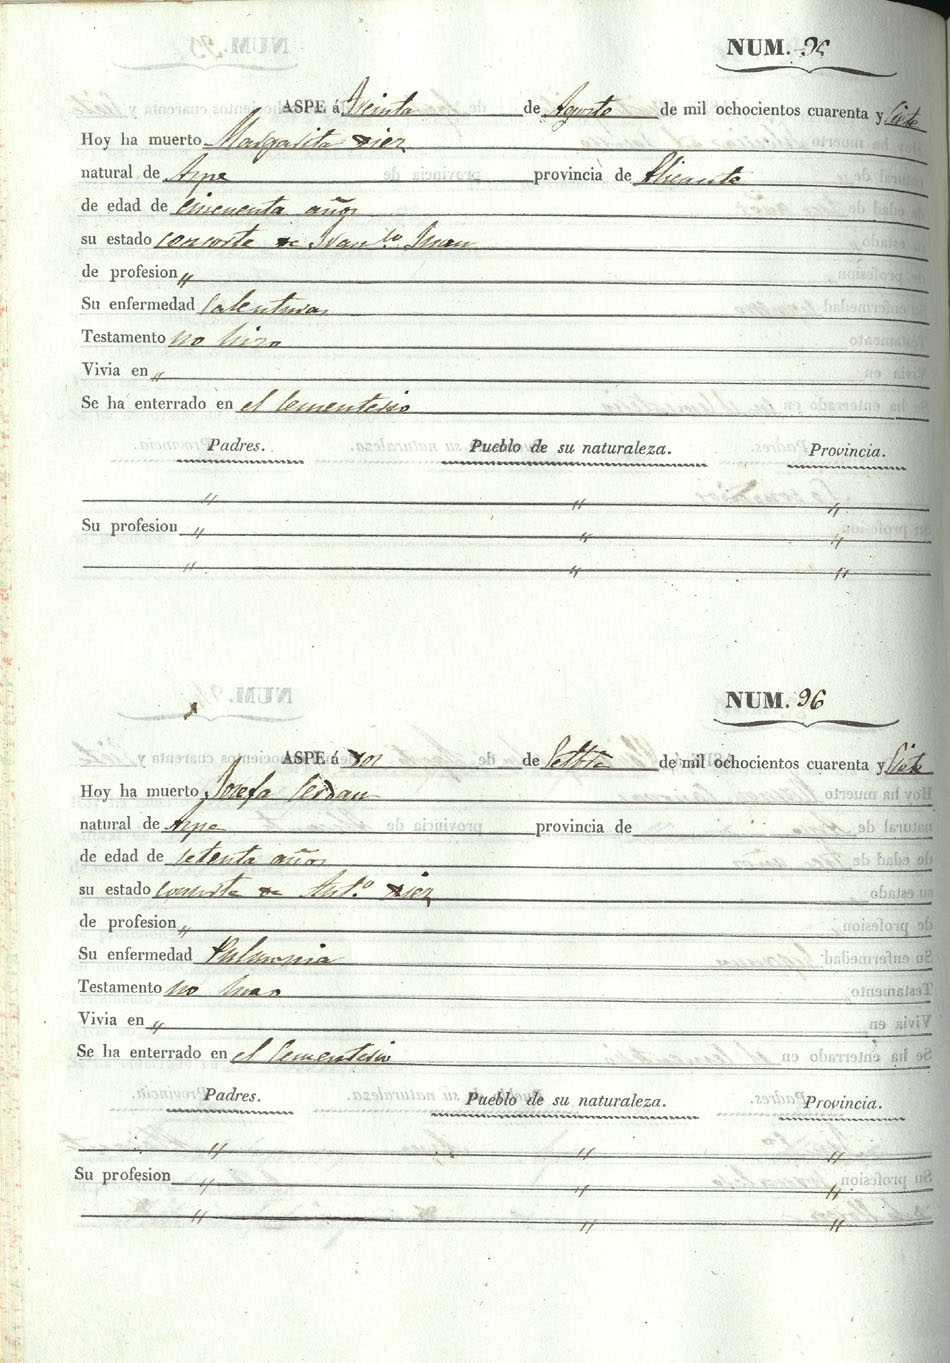 NUM. 95
ASPE á Treinta de Agosto de mil ochocientos cuarenta y Siete
Hoy ha muerto Margarita Diez
natural de Aspe provincia de Alicante
de edad de cincuenta años
su estado consorte de Fran.co Juan
de profesion „
Su enfermedad Calenturas
Testamento no hizo
Vivia en „
Se ha enterrado en el Cementerio
Padres. Pueblo de su naturaleza. Provincia.
„ „ „
Su profesion „ „ „
„ „ „
NUM. 96
ASPE á dos de Setbre de mil ochocientos cuarenta y Siete
Hoy ha muerto Josefa Cerdan
natural de Aspe provincia de
de edad de Setenta años
su estado consorte de Ant.o Diez
de profesion „
Su enfermedad Pulmonia
Testamento no hizo
Vivia en „
Se ha enterrado en el Cementerio
Padres. Pueblo de su naturaleza. Provincia.
„ „ „
Su profesion „ „ „
„ „ „